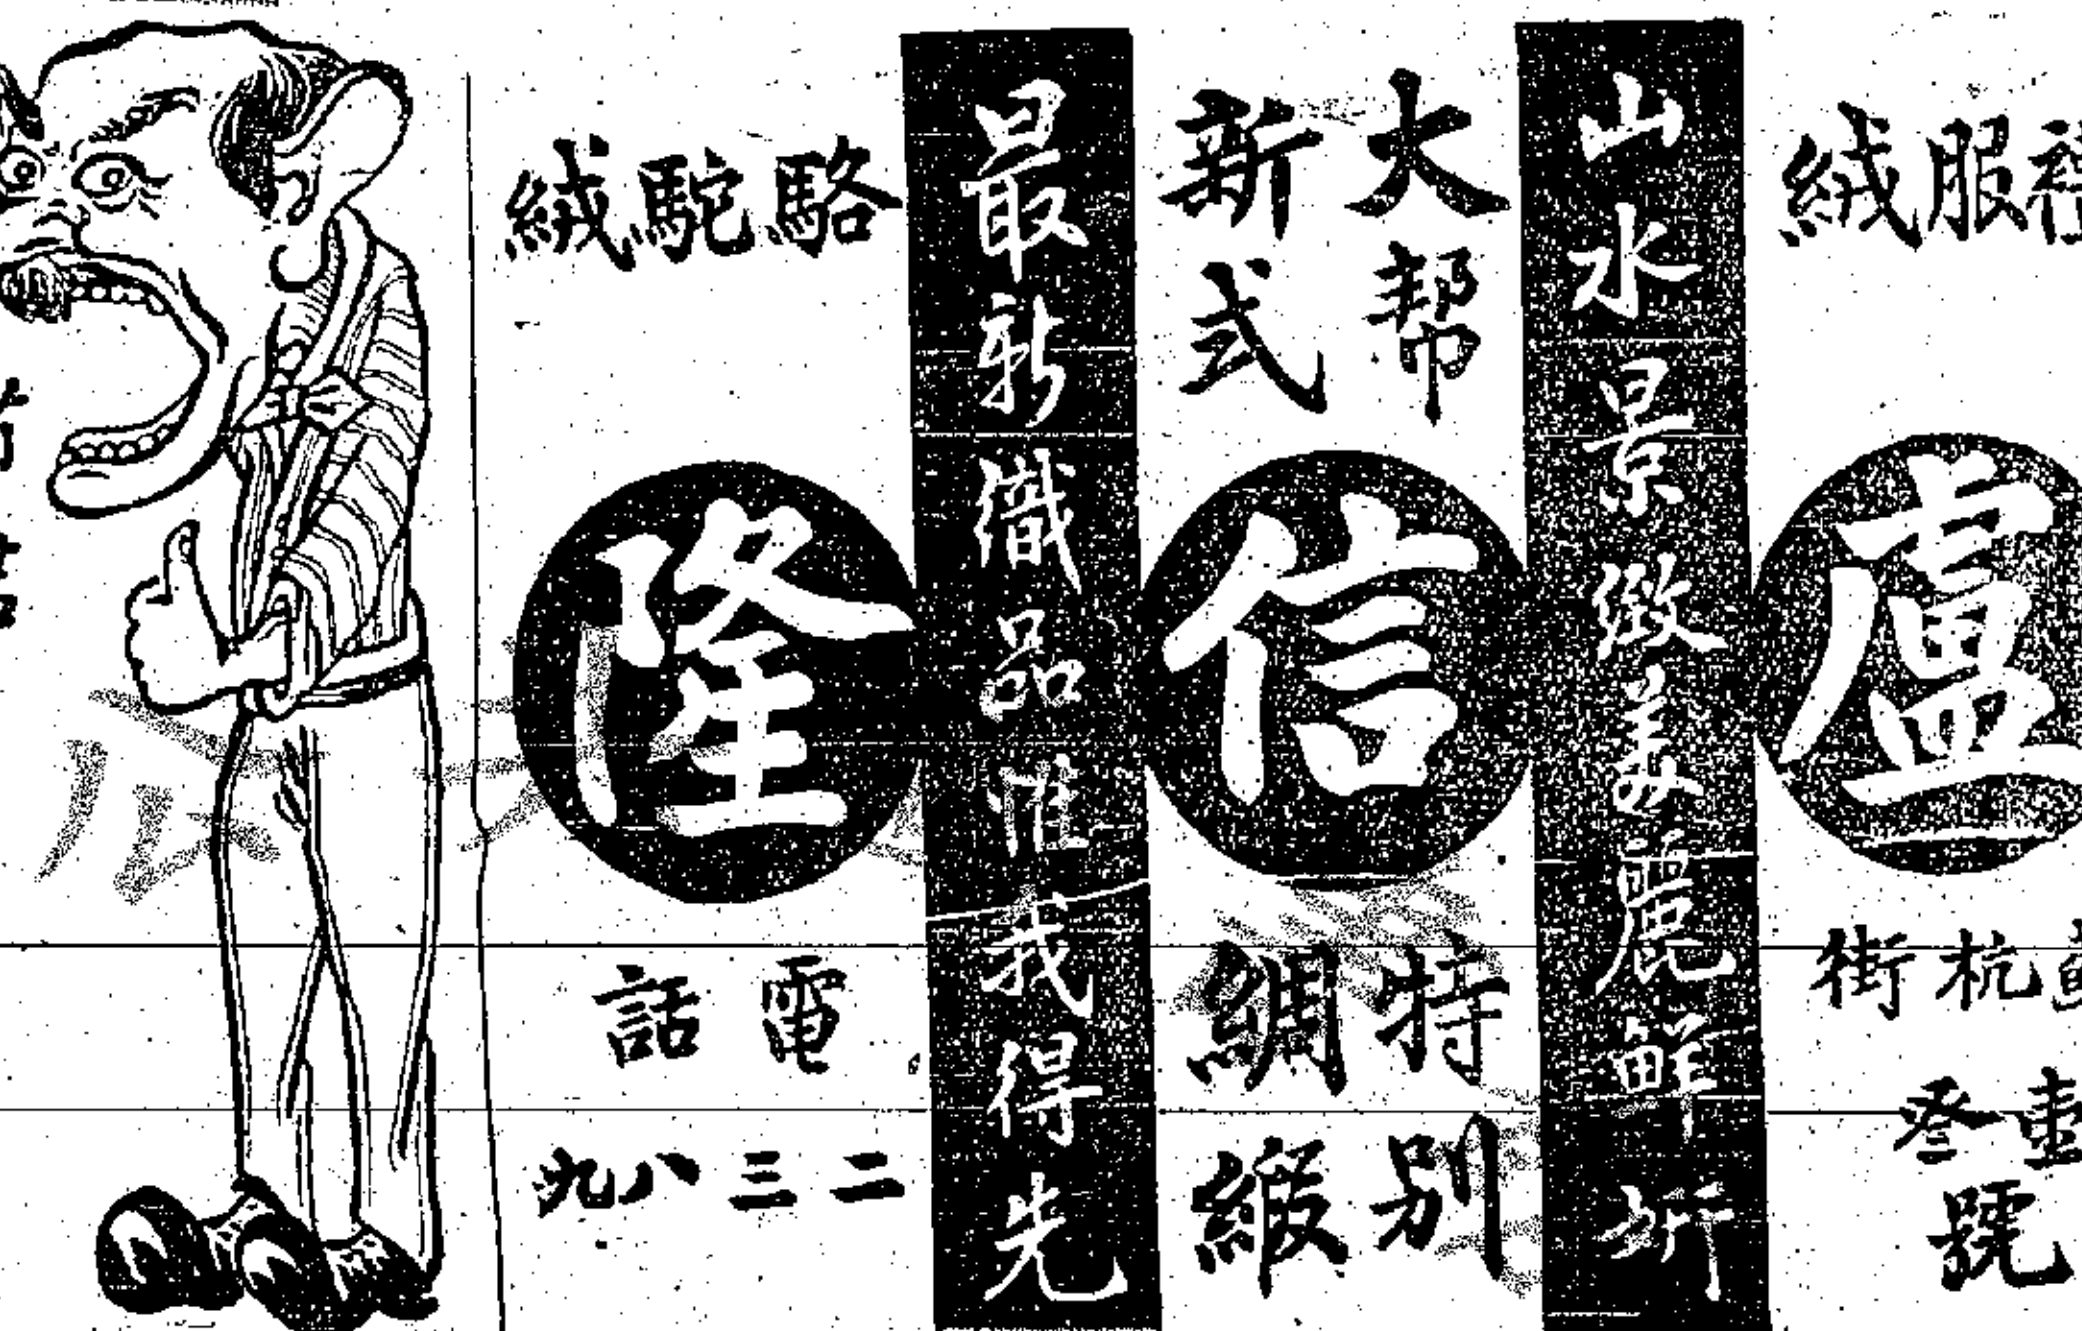 服絨
盧
杭街
壹叁號
山水景緻美麗鮮妍
大帮
新式
信
特別
綢緞
最新織品惟我得先
駱駝絨
隆
電話
二三八九